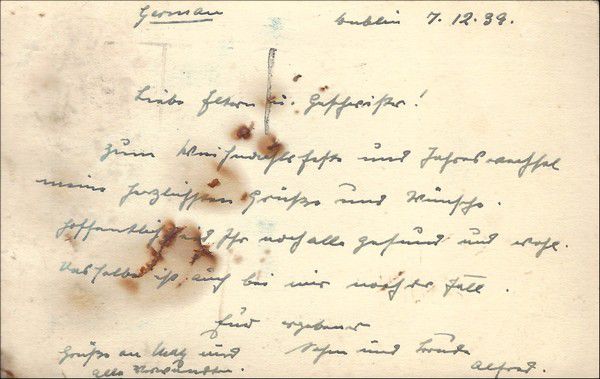 German
Dublin 7.12.39.
Liebe Eltern u. Geschwister!
Zum Weihnachtsfeste und Jahreswechsel
meine herzlichsten Grüße und Wünsche.
Hoffentlich seid Ihr noch alle gesund und wohl.
Dasselbe ist auch bei mir noch der Fall.
Euer ergebener
Sohn und Bruder
Alfred.
Grüße an und
alle Verwandten.